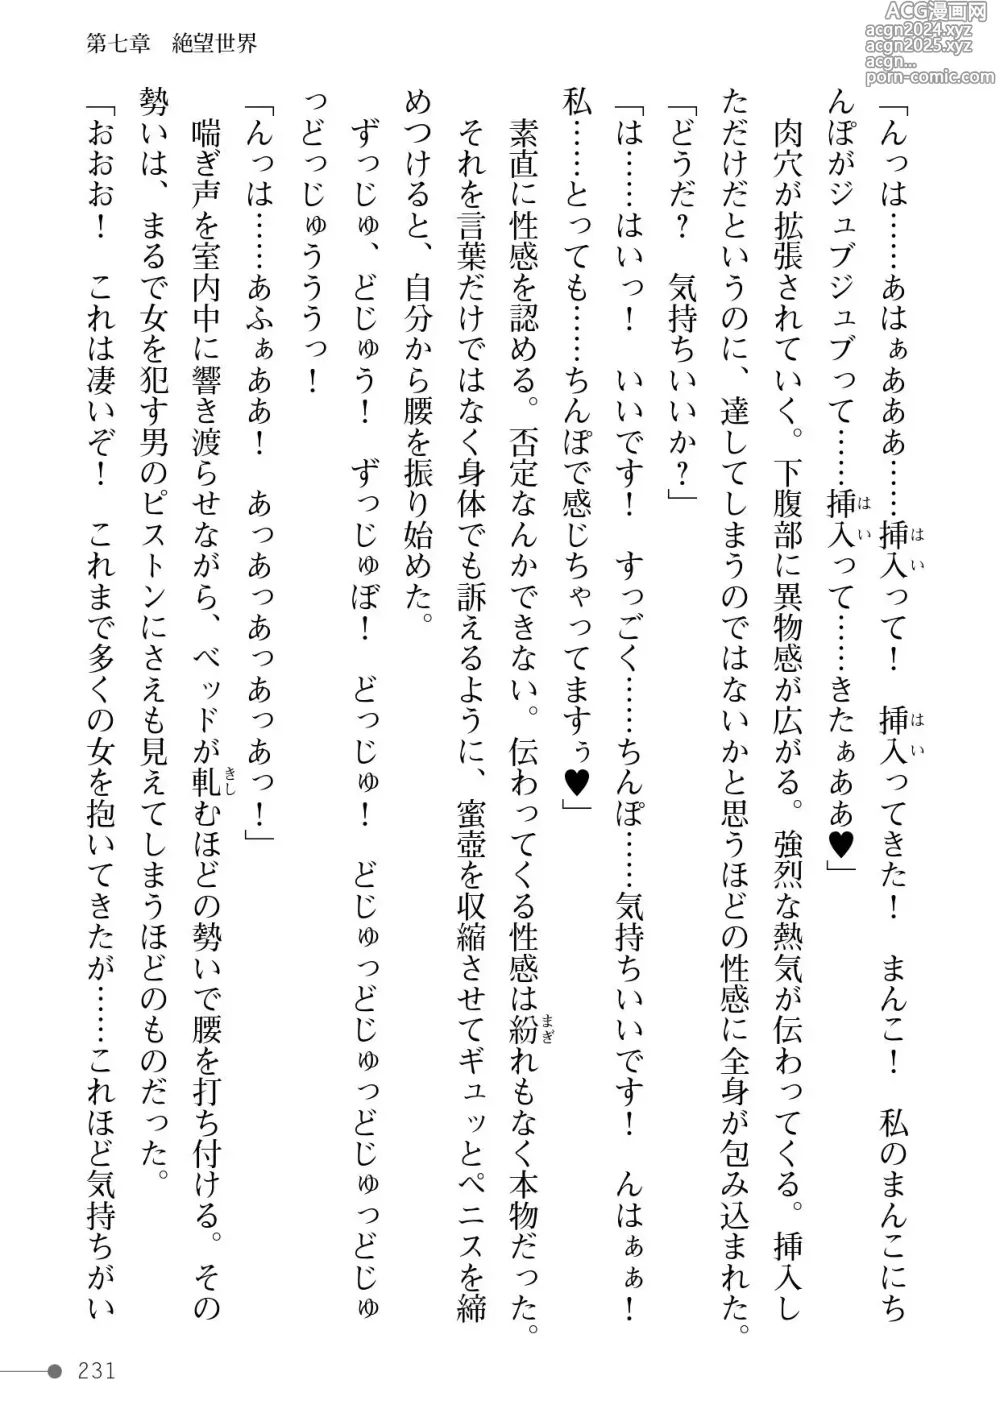 第七章　絶望世界
「んっは……あはぁあああ……挿入って！　挿入ってきた！　まんこ！　私のまんこにち
はい
はい
んぽがジュブジュブって……挿入って……きたぁああ♥」
はい
肉穴が拡張されていく。下腹部に異物感が広がる。強烈な熱気が伝わってくる。挿入し
ただけだというのに、達してしまうのではないかと思うほどの性感に全身が包み込まれた。
「どうだ？　気持ちいいか？」
「は……はいっ！　いいです！　すっごく……ちんぽ……気持ちいいです！　んはぁぁ！
私……とっても……ちんぽで感じちゃってますぅ♥」
素直に性感を認める。否定なんかできない。伝わってくる性感は紛れもなく本物だった。
まぎ
それを言葉だけではなく身体でも訴えるように、蜜壺を収縮させてギュッとペニスを締
めつけると、自分から腰を振り始めた。
ずっじゅ、どじゅう！　ずっじゅぼ！　どっじゅ！　どじゅっどじゅっどじゅっどじゅ
っどっじゅううっ！
「んっは……あふぁああ！　あっあっあっあっあっ！」
喘ぎ声を室内中に響き渡らせながら、ベッドが軋むほどの勢いで腰を打ち付ける。その
きし
勢いは、まるで女を犯す男のピストンにさえも見えてしまうほどのものだった。
「おおお！　これは凄いぞ！　これまで多くの女を抱いてきたが……これほど気持ちがい
231
ACG漫画网
acgn2024.xyz
acgn2025.xyz
acgn...
porn-comic.com